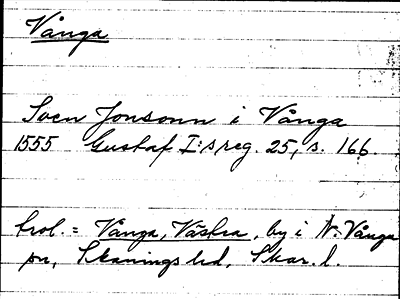 Vånga
Sven Jonsonn i Vånga
1555 Gustaf I:s reg. 25, s. 166.
trol. = Vånga, Västra, by i N. Vånga
sn, Skånings hd, Skar. l.